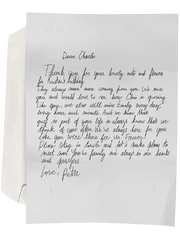 Dear Charles
Thank you for your lovely note and flowers
for Kristin's birthday.
They always mean more coming from you. We miss
you and would love to see how Clair is growing
like you, we also still miss Emily every day,
every hour and minute. And we know that
just as part of your life is always know that we
think of you often. We're always here for you
like you were there for us. Forever!
Please stay in touch and let's make plans to
meet soon. You're family and always in our hearts
and prayers.
Love, Patte